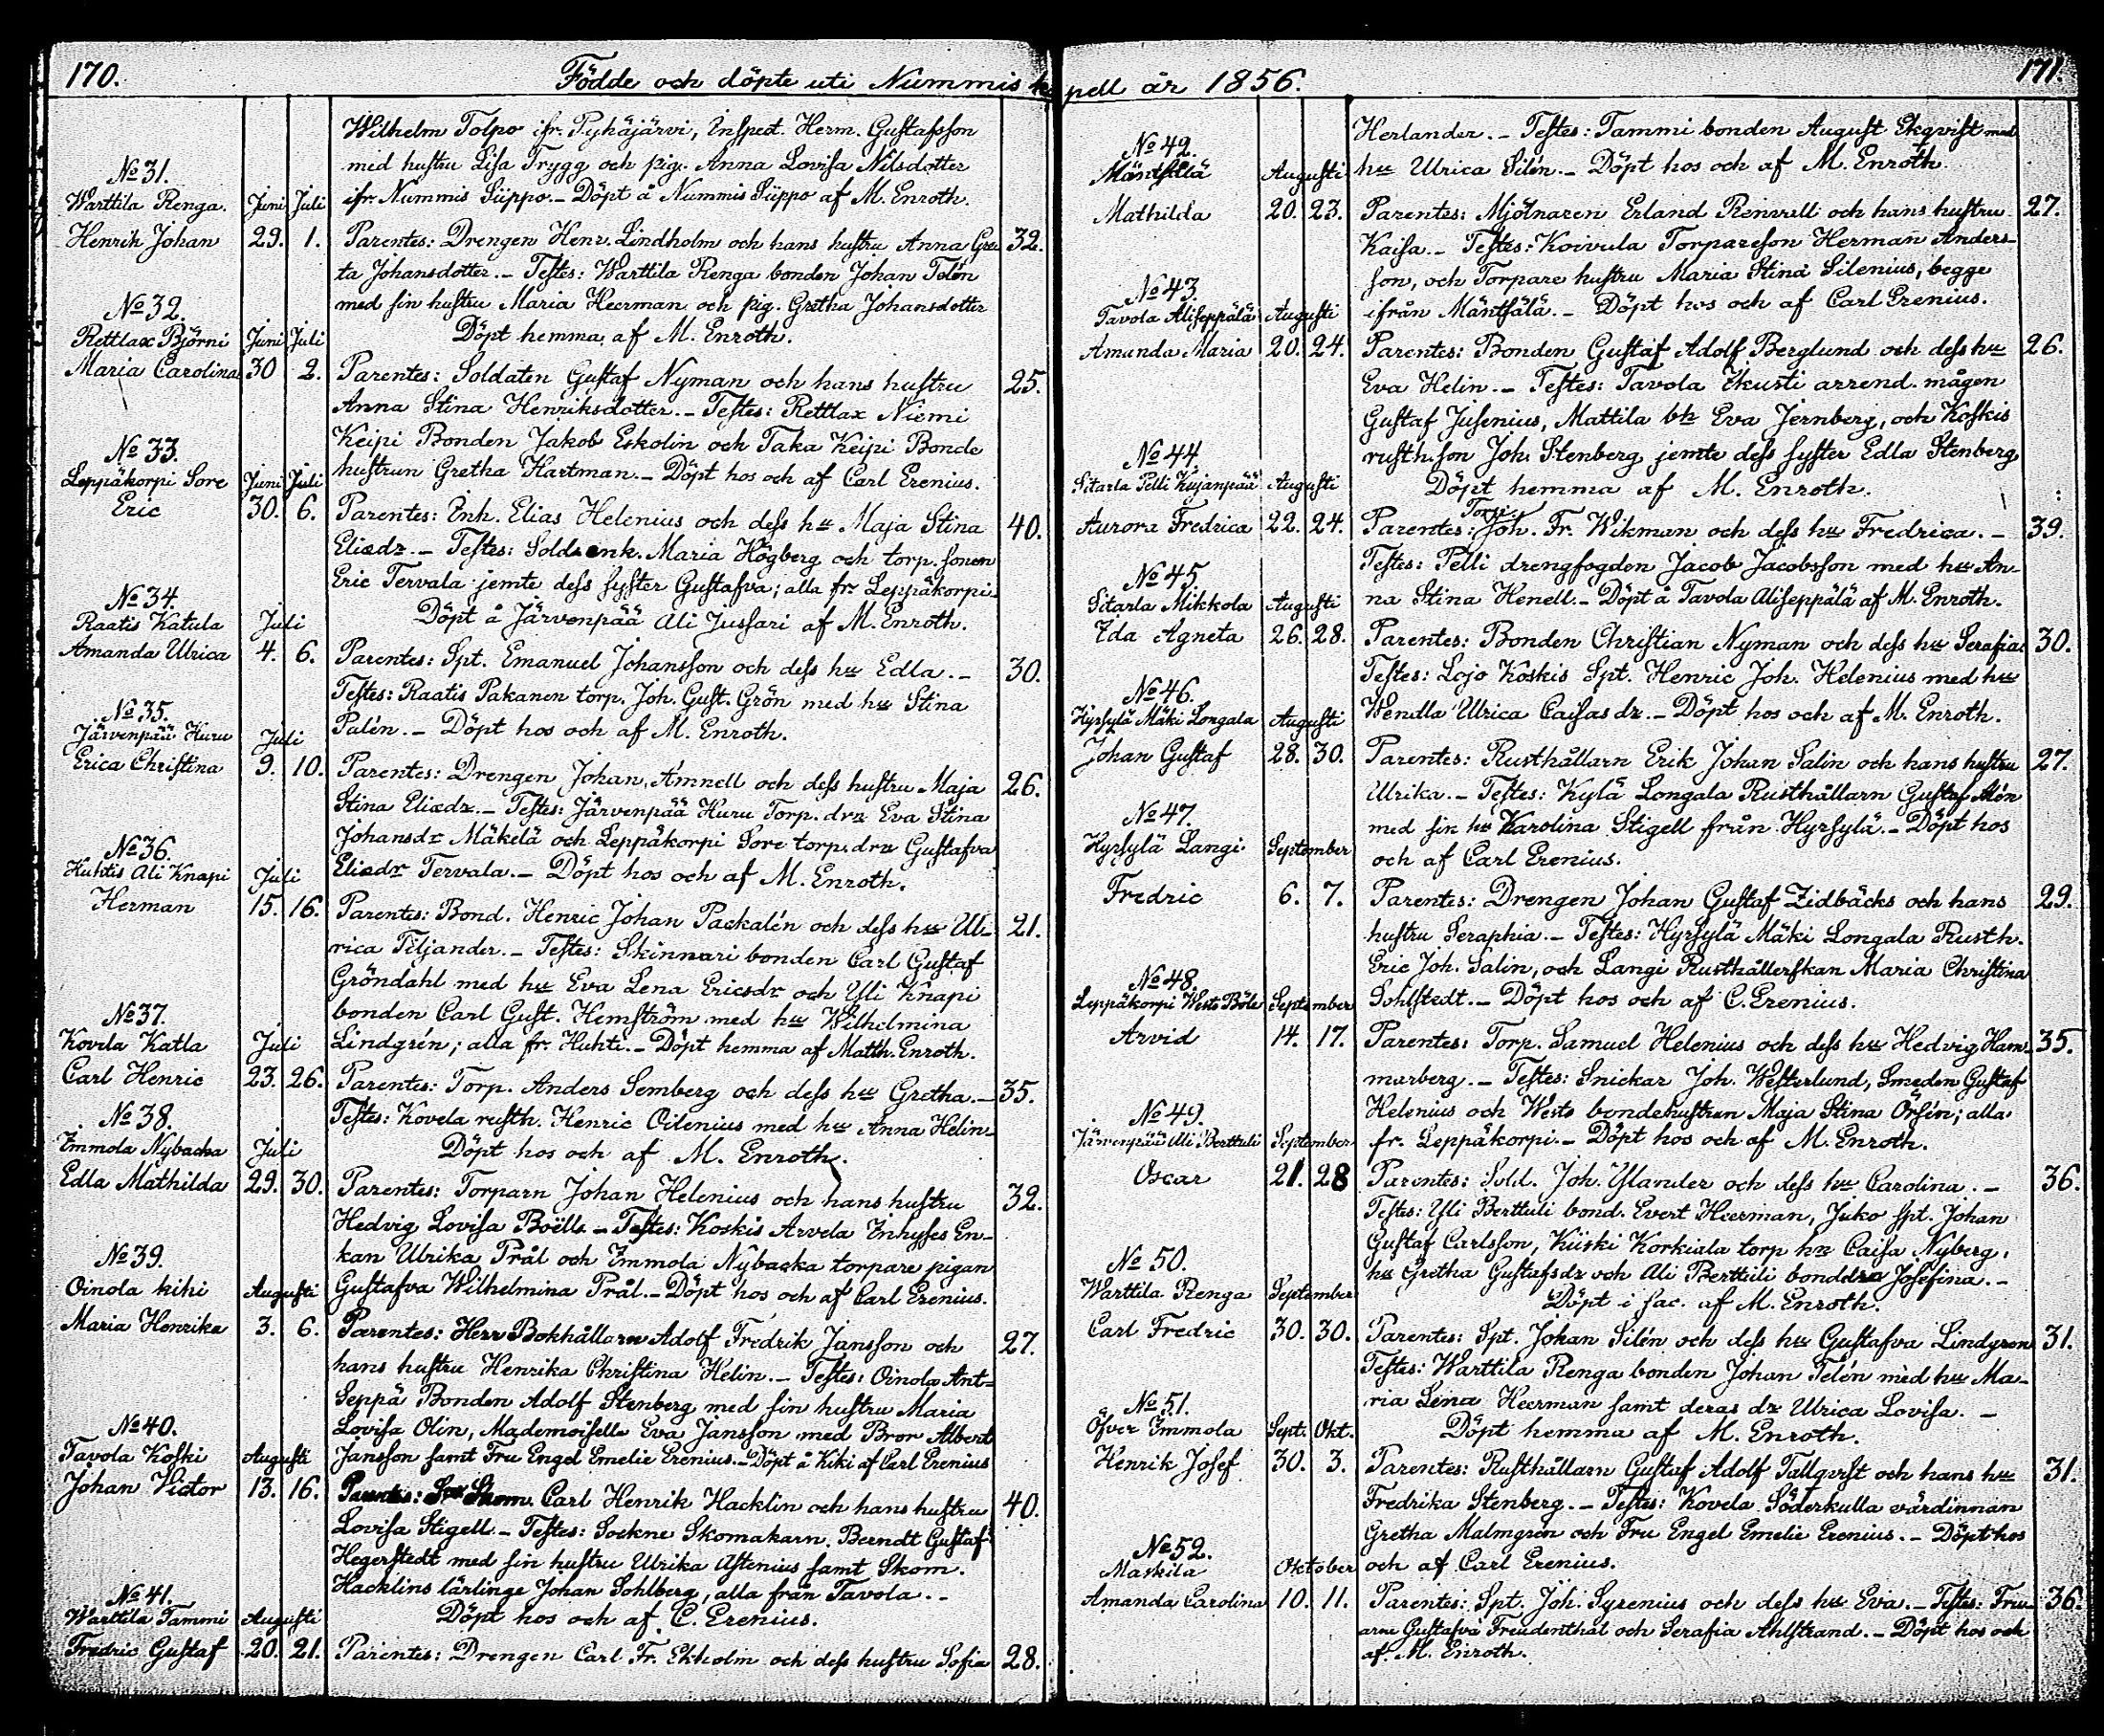 170.
Födde och döpte uti Nummis kapell år 1856.
171.
Wilhelm Tolpo ifr. Pyhäjärvi, Inspect. Herm. Gustafsson
med hustru Lisa Trygg och pig. Anna Lovisa Nilsdotter
ifr. Nummis Siippo. – Döpt å Nummis Siippo af M. Enroth.
No 31.
Warttila Renga. Juni Juli
Henrik Johan 29. 1. Parentes: Drengen Henr. Lindholm och hans hustru Anna Gre- 32.
ta Johansdotter. – Testes: Warttila Renga bonden Johan Telén
med sin hustru Maria Heerman och pig. Gretha Johansdotter
Döpt hemma af M. Enroth.
No 32.
Rettlax Björni Juni Juli
Maria Carolina 30 2. Parentes: Soldaten Gustaf Nyman och hans hustru 25.
Anna Stina Henriksdotter. – Testes: Rettlax Niemi
Keipi Bonden Jakob Eskolin och Taka Keipi Bonde
hustrun Gretha Hartman. – Döpt hos och af Carl Erenius.
No 33.
Leppäkorpi Sore Juni Juli
Eric 30. 6. Parentes: Inh. Elias Helenius och dess hu Maja Stina 40.
Eliædr. – Testes: Solds enk. Maria Högberg och torp. sonen
Eric Tervala jemte dess syster Gustafva; alla fr. Leppäkorpi.
Döpt å Järvenpää Ali Jussari af M. Enroth.
No 34.
Raatis Katula Juli
Amanda Ulrica 4. 6. Parentes: Spt. Emanuel Johansson och dess hu Edla. – 30.
Testes: Raatis Pakanen torp. Joh. Gust. Grön med hu Stina
Palén. – Döpt hos och af M. Enroth.
No 35.
Järvenpää Huru Juli
Erica Christina 9. 10. Parentes: Drengen Johan Amnell och dess hustru Maja 26.
Stina Eliædr. – Testes: Järvenpää Huru Torp. drn Eva Stina
Johansdr Mäkelä och Leppäkorpi Sore torp. drn Gustafva
Eliædr Tervala. – Döpt hos och af M. Enroth.
No 36.
Huhtis Ali Knapi Juli
Herman 15. 16. Parentes: Bond. Henric Johan Packalén och dess hu Ul- 21.
rica Tiljander. – Testes: Skinnari bonden Carl Gustaf
Gröndahl med hu Eva Lena Ericsdr och Yli Knapi
bonden Carl Gust. Hemström med hu Wilhelmina
Lindgrén; alla fr. Huhti. – Döpt hemma af Matth. Enroth.
No 37.
Kovela Katla Juli
Carl Henric 23. 26. Parentes: Torp. Anders Semberg och dess hu Gretha. – 35.
Testes: Kovela rusth. Henric Oilenius med hu Anna Helin.
Döpt hos och af M. Enroth.
No 38.
Immola Nybacka Juli
Edla Mathilda 29. 30. Parentes: Torparn Johan Helenius och hans hustru 32.
Hedvig Lovisa Boëlls – Testes: Koskis Arvela Inhyses En-
kan Ulrika Prål och Immola Nybacka torpare pigan
Gustafva Wilhelmina Prål. – Döpt hos och af Carl Erenius.
No 39.
Oinola kiki Augusti
Maria Henrika 3. 6. Parentes: Herr Bokhållarn Adolf Fredrik Jansson och 27.
hans hustru Henrika Christina Helin. – Testes: Oinola Ant-
Seppä Bonden Adolf Stenberg med sin hustru Maria
Lovisa Olin, Mademoiselle Eva Jansson med Bror Albert
Jansson samt Fru Engel Emelie Erenius. – Döpt å Kiki af Carl Erenius
No 40.
Tavola Koski Augusti
Johan Victor 13. 16. Parentes: Skom. Carl Henrik Hacklin och hans hustru 40.
Lovisa Stigell. – Testes: Sockne Skomakarn Berndt Gustaf
Hegerstedt med sin hustru Ulrika Astenius samt Skom.
Hacklins lärlinge Johan Sohlberg, alla från Tavola. –
Döpt hos och af C. Erenius.
No 41.
Warttila Tammi Augusti
Fredric Gustaf 20. 21. Parentes: Drengen Carl Fr. Ekholm och dess hustru Sofia 28.
Herlander. – Testes: Tammi bonden August Ekqvist med
hu Ulrica Silén. – Döpt hos och af M. Enroth.
No 42.
Mäntsälä Augusti
Mathilda 20. 23. Parentes: Mjölnaren Erland Renvall och hans hustru 27.
Kaisa. – Testes: Koivula Torpareson Herman Anders-
son, och Torpare hustru Maria Stina Silenius, begge
ifrån Mäntsälä. – Döpt hos och af Carl Erenius.
No 43.
Tavola Aliseppälä Augusti
Amanda Maria 20. 24. Parentes: Bonden Gustaf Adolf Berglund och dess hu 26.
Eva Helin. – Testes: Tavola Ikusti arrend. mågen
Gustaf Jusenius, Mattila bh Eva Jernberg, och Koskis
rusth. son Joh. Stenberg jemte dess syster Edla Stenberg
Döpt hemma af M. Enroth.
No 44
Sitarla Pelli Kujanpää Augusti
Torp.
Aurora Fredrica 22. 24. Parentes: Joh. Fr. Wikman och dess hu Fredrica. – 39.
Testes: Pelli drengfogden Jacob Jacobsson med hu An-
na Stina Henell. – Döpt å Tavola Aliseppälä af M. Enroth.
No 45.
Sitarla Mikkola Augusti
Ida Agneta 26. 28. Parentes: Bonden Christian Nyman och dess hu Serafia. 30.
Testes: Lojo Koskis Spt. Henric Joh. Helenius med hu
Wendla Ulrica Caisas dr. – Döpt hos och af M. Enroth.
No 46.
Hyrsylä Mäki Longala Augusti
Johan Gustaf 28. 30. Parentes: Rusthållarn Erik Johan Salin och hans hustru 27.
Ulrika. – Testes: Kylä Longala Rusthållarn Gustaf Alén
med sin hu Karolina Stigell från Hyrsylä. – Döpt hos
och af Carl Erenius.
No 47.
Hyrsylä Langi September
Fredric 6. 7. Parentes: Drengen Johan Gustaf Lidbäcks och hans 29.
hustru Seraphia. – Testes: Hyrsylä Mäki Longala Rusth.
Eric Joh. Salin, och Langi Rusthållerskan Maria Christina
Sohlstedt. – Döpt hos och af C. Erenius.
No 48.
Leppäkorpi Wests Böle September
Arvid 14. 17. Parentes: Torp. Samuel Helenius och dess hu Hedvig Ham- 35.
marberg. – Testes: Snickar Joh. Westerlund, Smeden Gustaf
Helenius och Wests bondehustrun Maja Stina Örsén; alla
fr. Leppäkorpi. – Döpt hos och af M. Enroth.
No 49.
Järvenpää Ali Berttuli September
Oscar 21. 28 Parentes: Sold. Joh. Ylander och dess hu Carolina. – 36.
Testes: Yli Berttuli bond. Evert Heerman, Juko spt. Johan
Gustaf Carlsson, Kiiski Korkiala torp hu Caisa Nyberg,
hu Gretha Gustafsdr och Ali Berttuli bonddrn Josefina. –
Döpt i sac. af M. Enroth.
No 50.
Warttila Renga September
Carl Fredric 30. 30. Parentes: Spt. Johan Silén och dess hu Gustafva Lindgren 31.
Testes: Warttila Renga bonden Johan Telén med hu Ma-
ria Lena Heerman samt deras dr Ulrica Lovisa. –
Döpt hemma af M. Enroth.
No 51.
Öfver Immola Sept. Okt.
Henrik Josef 30. 3. Parentes: Rusthållarn Gustaf Adolf Tallqvist och hans hu 31.
Fredrika Stenberg. – Testes: Kovela Söderkulla värdinnan
Gretha Malmgren och Fru Engel Emelie Erenius. – Döpt hos
och af Carl Erenius.
No 52.
Maskila Oktober
Amanda Carolina 10. 11. Parentes: Spt. Joh. Syrenius och dess hu Eva. – Testes: Fru- 36.
arne Gustafva Freudenthal och Serafia Ahlstrand. – Döpt hos och
af M. Enroth.